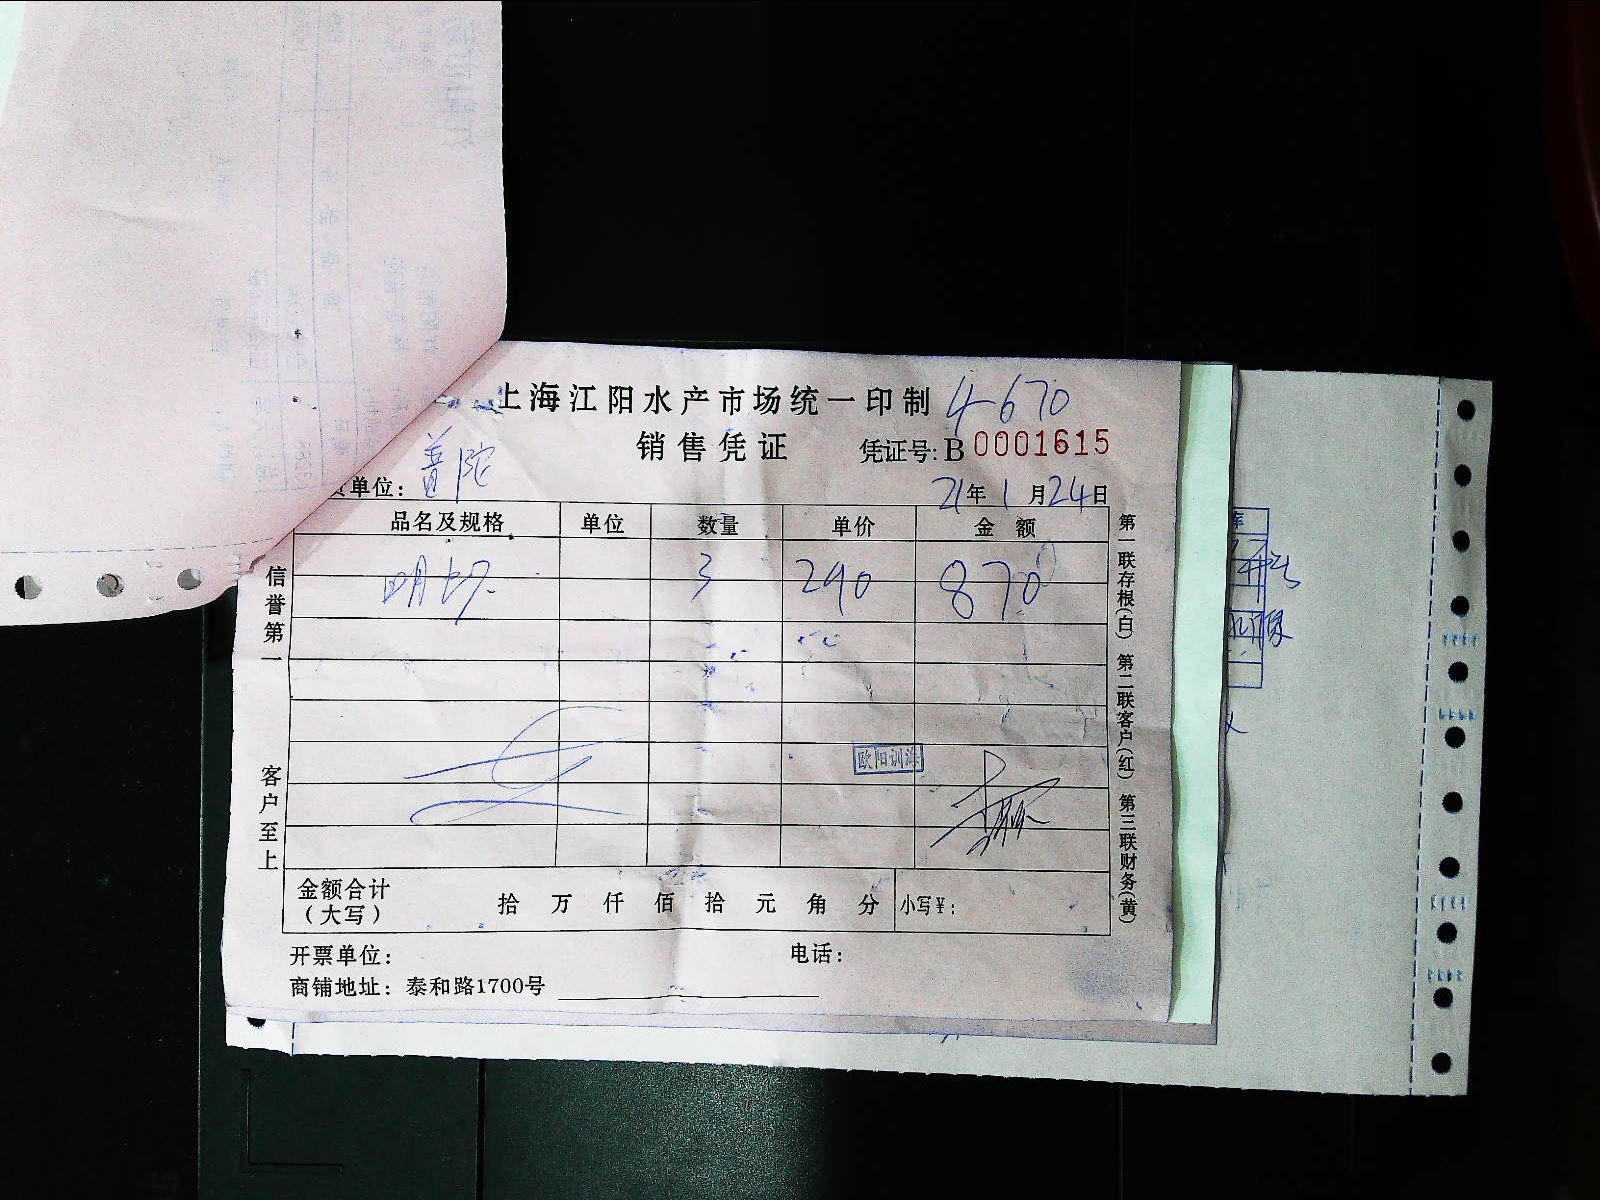 上海江阳水产市场统一印制 4-670
销售凭证 凭证号: B 0001615
单位: 普陀 21年 1月24日
品名及规格 单位 数量 单价 金额
明虾 3 290 870
欧阳训海
金额合计
(大写) 拾 万 仟 佰 拾 元 角 分 小写¥:
开票单位: 电话:
商铺地址: 泰和路1700号
信誉第一
客户至上
第一联存根(白) 第二联客户(红) 第三联财务(黄)